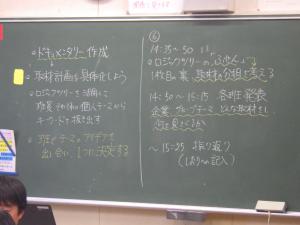 ○ドキュメンタリー作成
○取材計画を具体化しよう
○ロジックツリーを活用して
班員それぞれの個人テーマから
キーワードを抜き出す
○班でテーマのアイデアを
出し合い、1つに決定する
⑥
14:35~50
○ロジックツリーの
1枚目の裏、取材の分担を考える
14:50~15:15 各班発表
企業、グループテーマ、どんな取材をし
~15:25 振り返り
(しおりへの記入)